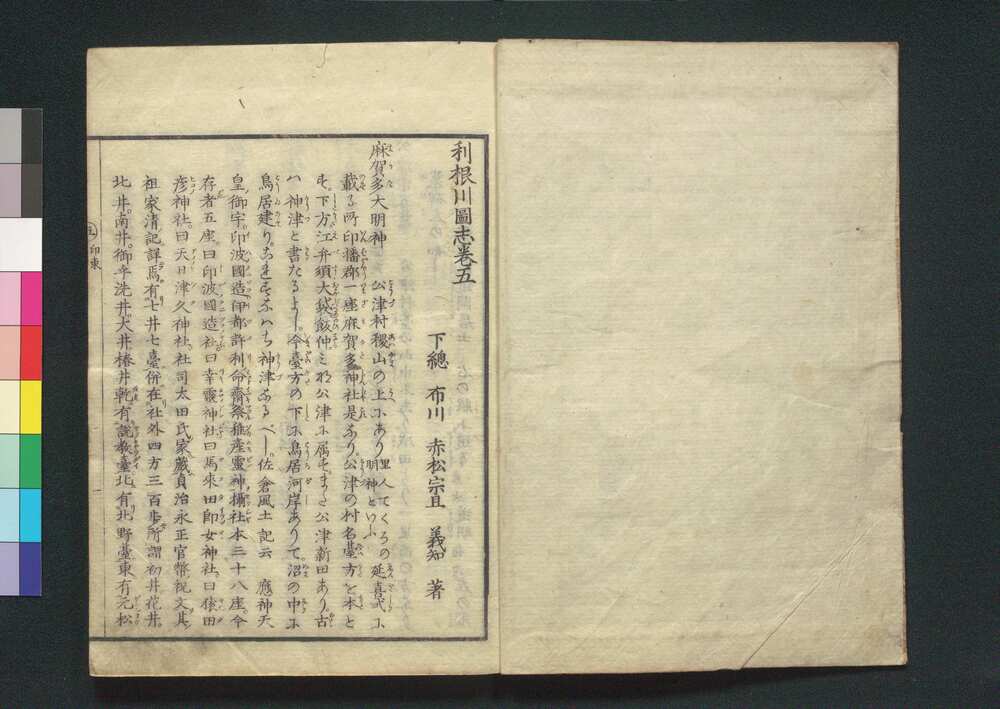 利根川圖志巻五
下總 布川 赤松宗旦 義知 著
麻賀多大明神 公津村稷山の上にあり 里人てくろの明神といふ 延喜式に
載る所印播郡一座麻賀多神社是なり。公津の村名臺方を本と
す。下方江弁須大袋飯仲ミな公津に属す。また公津新田あり。古
ハ神津と書たるよし。今臺方の下に鳥居河岸ありて。沼の中に
鳥居建り。これすなハち神津なるべし。佐倉風土記云 應神天
皇御宇。印波國造伊都許利命齋祭稚産靈神。攝社本三十八座。今
存者五座。曰印波國造社。曰幸靈神社。曰馬來田郎女神社。曰猿田
彦神社。曰天日津久神社。社司太田氏家藏貞治永正官幣祝文。其
祖家清記詳焉。有七井七臺併在社外四方三百歩。所謂初井花井。
北井。南井。御手洗井。大井椿井乾。有説教臺北。有北野臺東有元松
五 印東
一